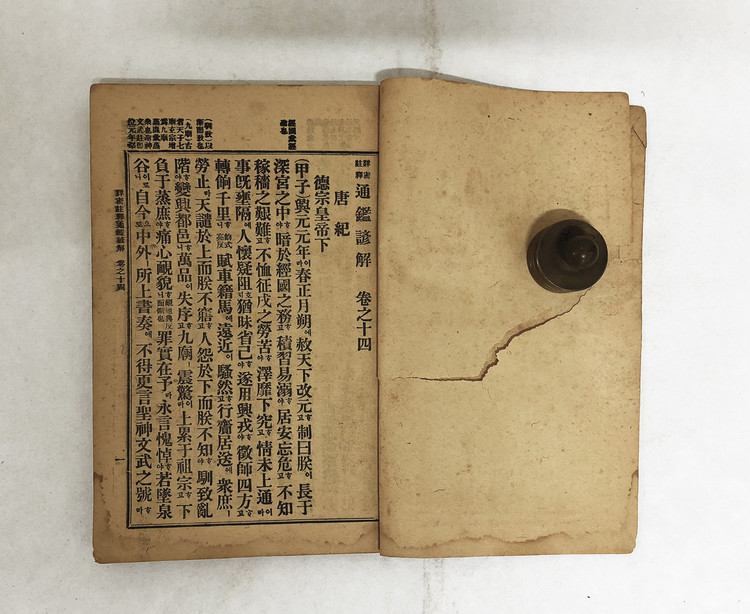 詳密註釋 通鑑諺解 卷之十四
唐紀
德宗皇帝下
(甲子)興元元年이라春正月朔에赦天下改元ᄒᆞ고制曰朕이長于
深宮之中ᄒᆞ야暗於經國之務ᄒᆞ고積習易溺ᄒᆞ야居安忘危ᄒᆞ고不知
稼穡之艱難ᄒᆞ고不恤征戍之勞苦ᄒᆞ야澤靡下究ᄒᆞ고情未上通이라
事旣壅隔에人懷疑阻ᄒᆞ니猶昧省己ᄒᆞ야遂用興戎ᄒᆞ야徵師四方ᄒᆞ고
轉餉千里ᄒᆞ야賦車籍馬에遠近이騷然ᄒᆞ고行齎居送에衆庶ㅣ
勞止라天譴於上而朕不寤ᄒᆞ고人怨於下而朕不知ᄒᆞ야馴致亂
階ᄒᆞ야變興都邑ᄒᆞ니萬品이失序ᄒᆞ고九廟ㅣ震驚이라上累于祖宗ᄒᆞ고下
負于蒸庶ᄒᆞ니痛心靦貌ᄒᆞ야罪實在予라永言愧悼ᄒᆞ야若墜泉
谷이로니自今으로中外ㅣ所上書奏에不得更言聖神文武之號ᄒᆞ라
詳密註釋通鑑諺解 卷之十四 一